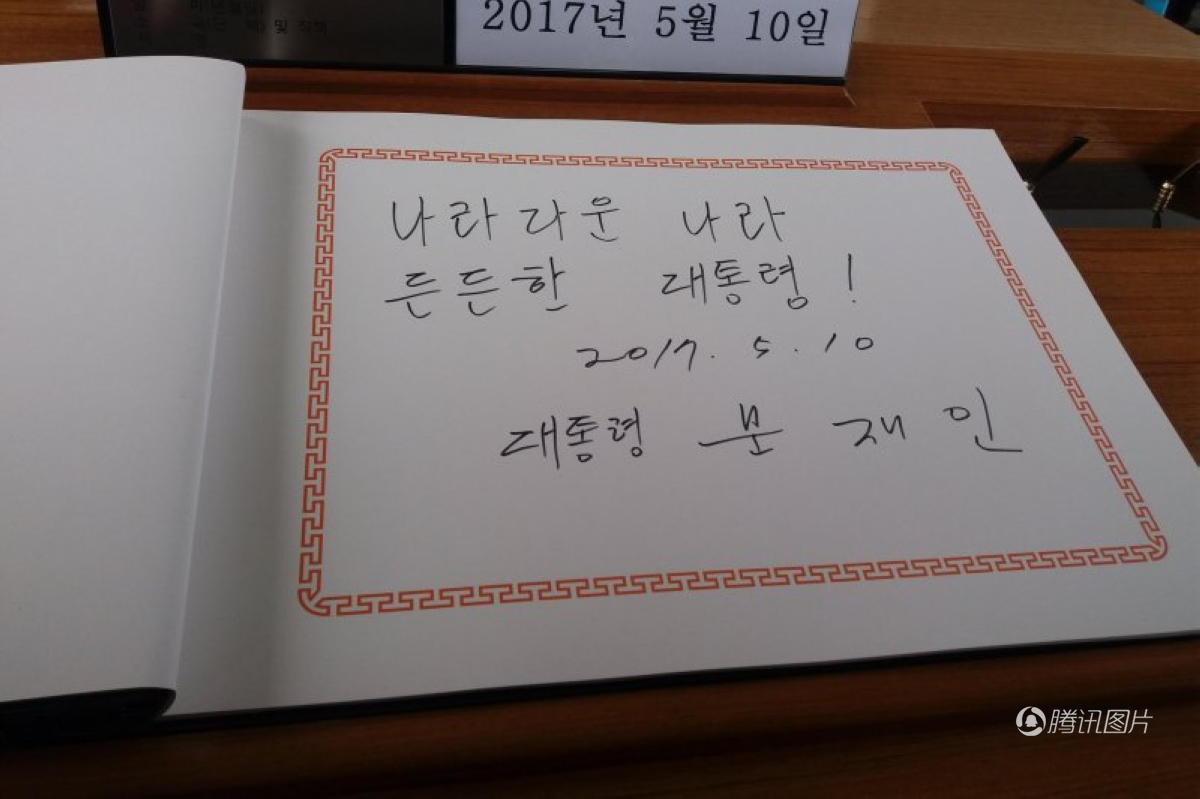 2017년 5월 10일
및 직책
나라다운 나라
든든한 대통령!
2017. 5. 10
대통령 문재인
腾讯图片